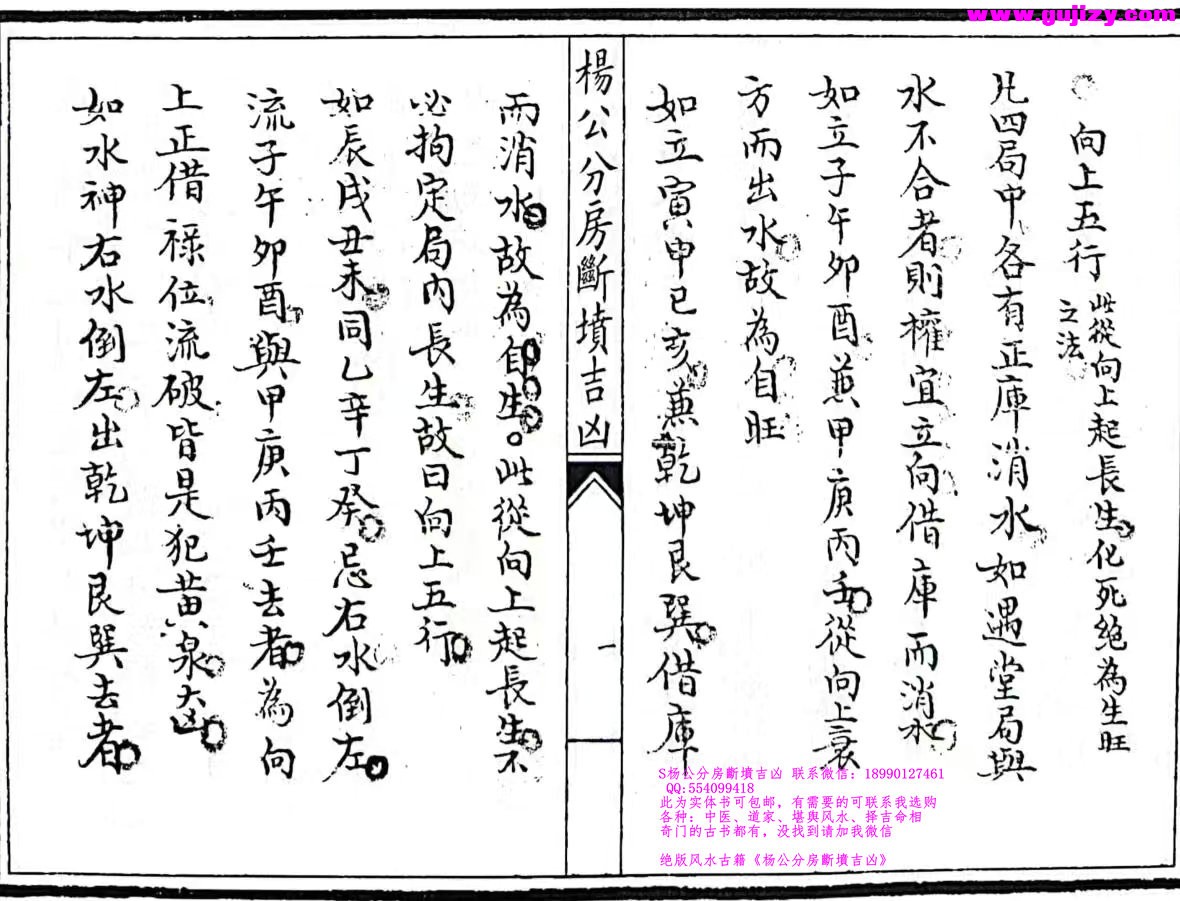 www.gujizy.com
向上五行 此從向上起長生化死絕為生旺
之法
凡四局中各有正庫消水如遇堂局與
水不合者則權宜立向借庫而消水
如立子午卯酉兼甲庚丙壬從向上衰
方而出水故為自旺
如立寅申巳亥兼乾坤艮巽借庫
楊公分房斷墳吉凶
一
而消水故為自生。此從向上起長生不
必拘定局內長生故曰向上五行
如辰戌丑未同乙辛丁癸忌右水倒左
流子午卯酉與甲庚丙壬去者為向
上正借祿位流破皆是犯黃泉大凶
如水神右水倒左出乾坤艮巽去者
S杨公分房斷墳吉凶 联系微信: 18990127461
QQ:554099418
此为实体书可包邮，有需要的可联系我选购
各种: 中医、道家、堪舆风水、择吉命相
奇门的古书都有，没找到请加我微信
绝版风水古籍《杨公分房斷墳吉凶》